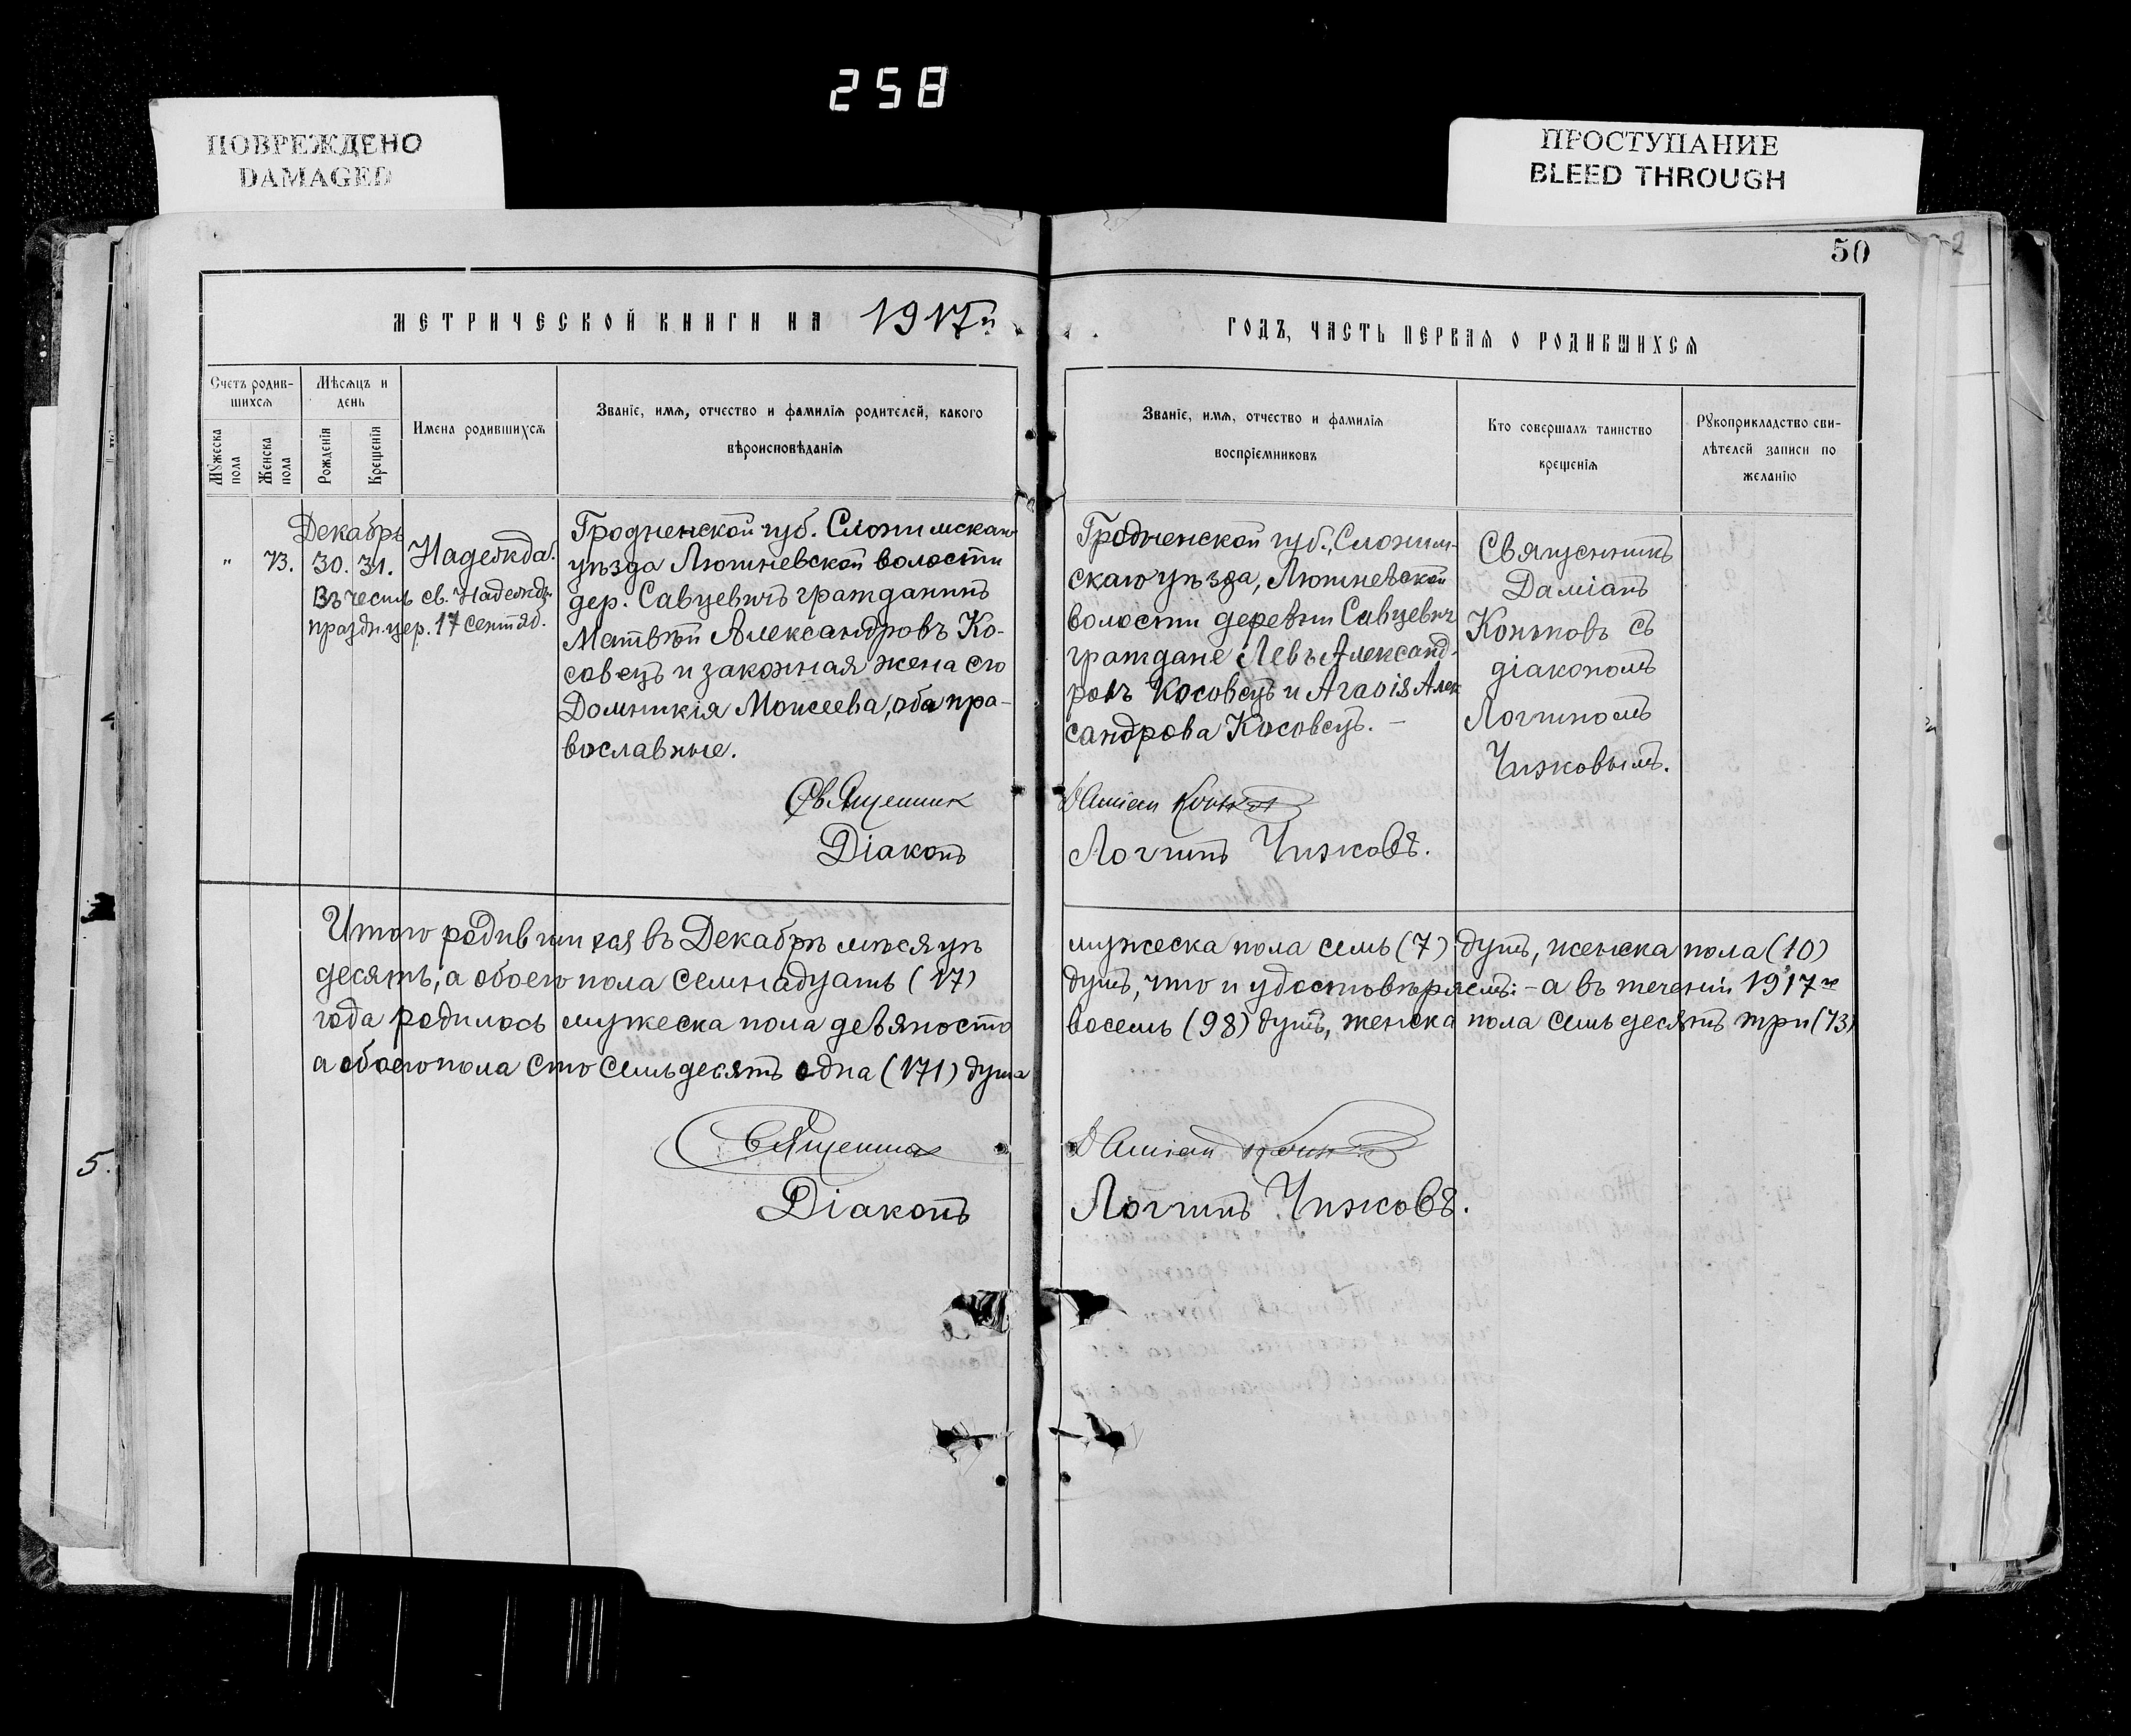 258
ПОВРЕЖДЕНО
DAMAGED
ПРОСТУПАНИЕ
BLEED THROUGH
50
МЕТРИЧЕСКОЙ КНИГИ НА 1917й
ГОДЪ, ЧАСТЬ ПЕРВАЯ О РОДИВШИХСЯ
Счетъ родив-
шихся
Мѣсяцъ и
день
Мужеска
пола
Женска
пола
Рожденія
Крещенія
Имена родившихся
Званіе, имя, отчество и фамилія родителей, какого
вѣроисповѣданія
Званіе, имя, отчество и фамилія
воспріемниковъ
Кто совершалъ таинство
крещенія
Рукоприкладство сви-
дѣтелей записи по
желанію
Декабрь
" 73. 30. 31. Надежда.
Въ честь св. Надежды
праздн. цер. 17 сентяб.
Гродненской губ. Слонимскаго
уѣзда Лютневской волости
дер. Савцевичъ гражданинъ
Матвѣй Александровъ Ко-
совецъ и законная жена его
Домникія Моисеева, оба пра-
вославные.
Гродненской губ., Слоним-
скаго уѣзда, Лютневской
волости деревни Савцевичъ
граждане Левъ Александ-
ровъ Косовецъ и Агаѳія Алек
сандрова Косовецъ. –
Священникъ
Даміанъ
Коньковъ съ
діакономъ
Логгиномъ
Чижовымъ.
Священник Даміан Коньков
Діаконъ Логгинъ Чижовъ.
Итого родившихся въ Декабрѣ мѣсяцѣ мужеска пола семь (7) душъ, женска пола (10)
десять, а обоего пола семнадцать (17) душъ, что и удостовѣряемъ: – а въ теченіи 1917го
года родилось мужеска пола девяносто восемь (98) душъ, женска пола семьдесятъ три (73)
а обоего пола сто семьдесятъ одна (171) душа
Священник Даміан Коньков
Діаконъ Логгинъ Чижовъ.
5.